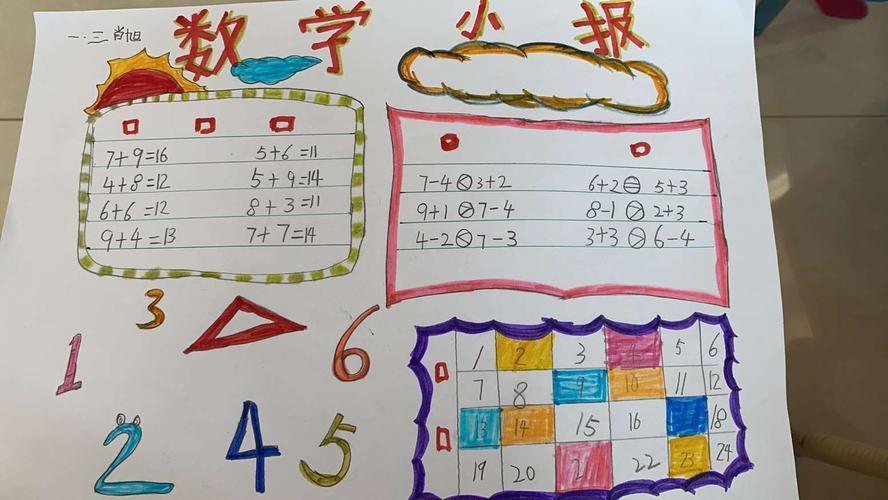 一.三 肖旭
数学小报
7+9=16 5+6=11
4+8=12 5+9=14
6+6=12 8+3=11
9+4=13 7+7=14
7-4<3+2 6+2=5+3
9+1>7-4 8-1>2+3
4-2<7-3 3+3>6-4
3
6
1
2 4 5
1 2 3 4 5 6
7 8 9 10 11 12
13 14 15 16 18
19 20 21 22 23 24